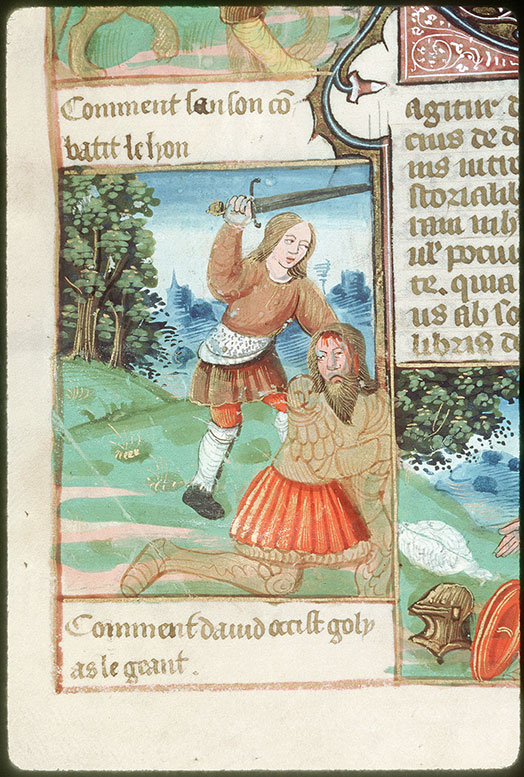 Comment sanson cō
batit le lyon
Comment dauid occist goly
as le geant.
agitur d
cius de d
ms
storialib
ut pocui
te. quia
us ab so
libris d